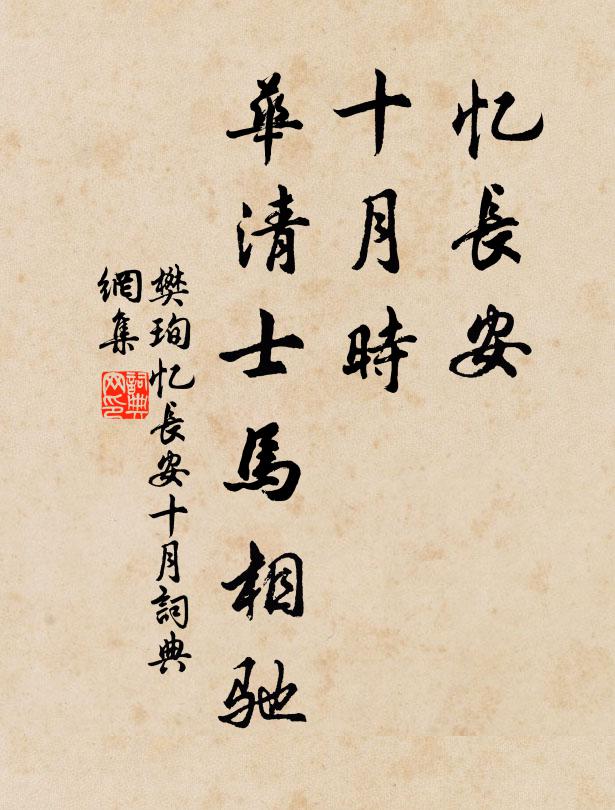 忆長安
十月時
華清士馬相馳
樊珣忆長安十月詞典
網集
詞典
网印